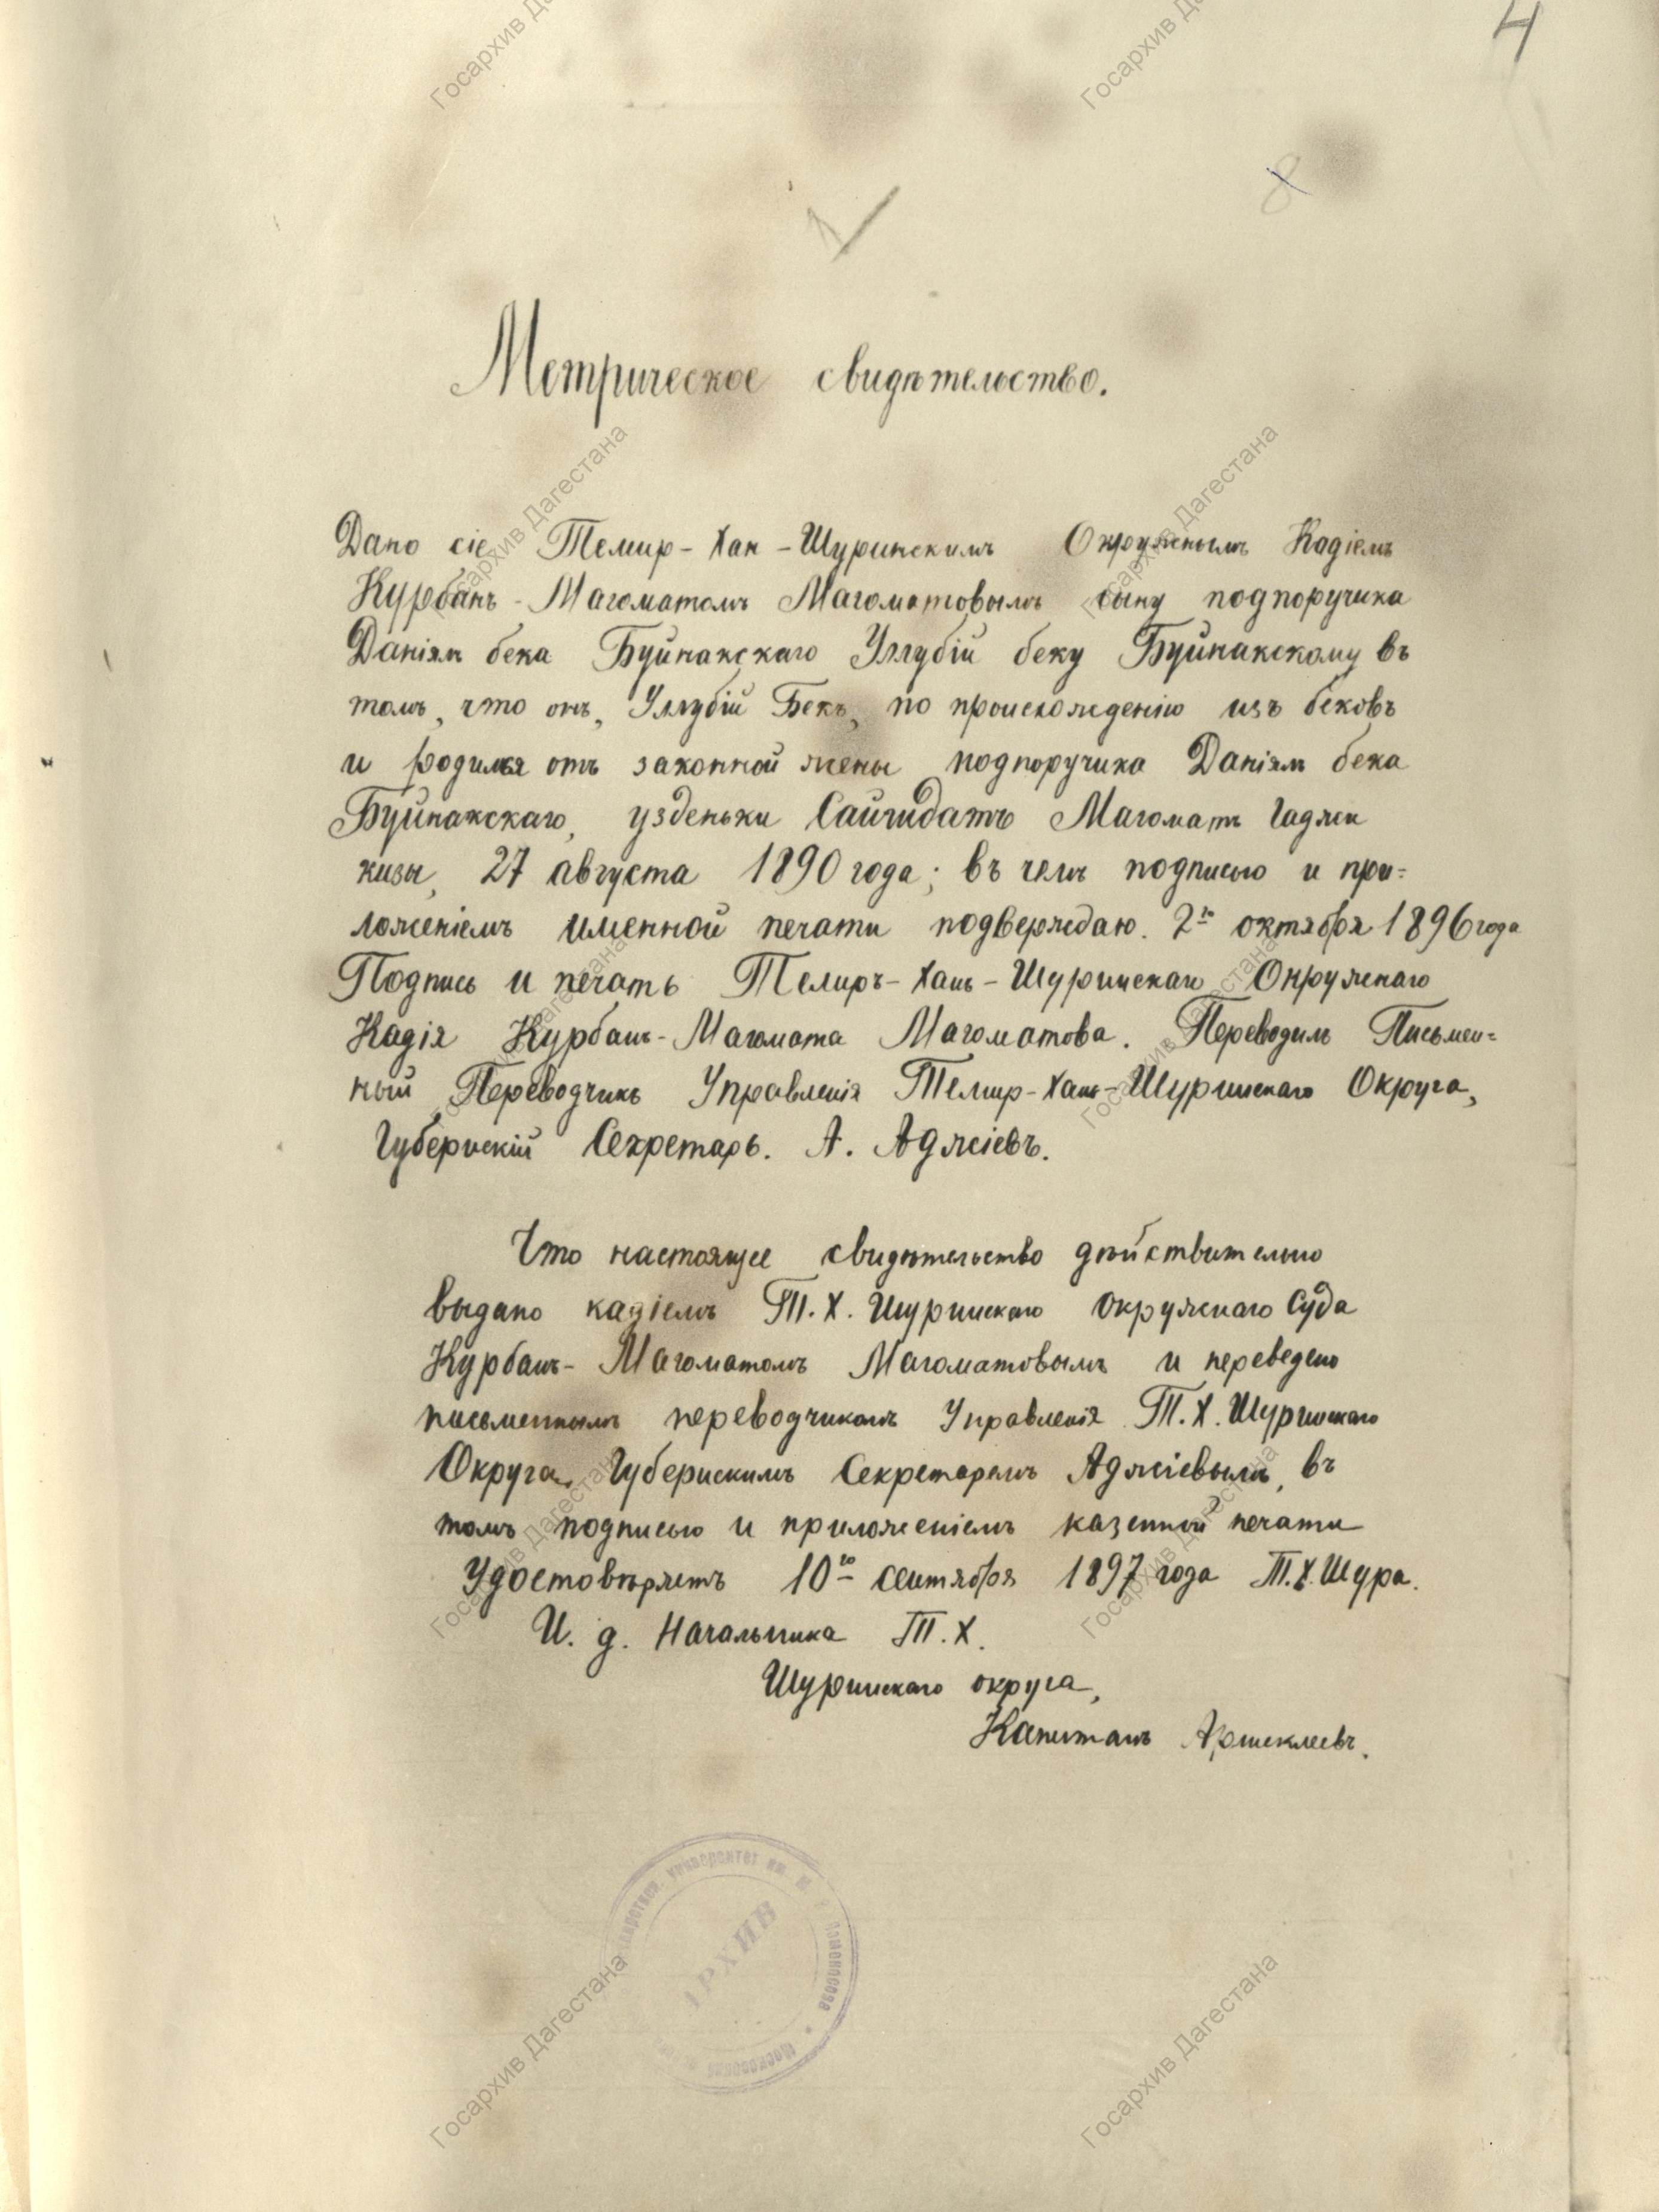 4
8
Метрическое свидѣтельство.
Дано сіе Темир-Хан-Шуринскимъ Окружнымъ Кадіемъ
Курбанъ-Магоматомъ Магоматовымъ сыну подпоручика
Даніялъ бека Буйнакскаго Уллубій беку Буйнакскому въ
томъ, что онъ, Уллубій Бекъ, по происхожденію изъ бековъ
и родился отъ законной жены подпоручика Даніялъ бека
Буйнакскаго, узденьки Сайгидатъ Магоматъ Гаджи
кизы, 27 августа 1890 года; въ чемъ подписью и при=
ложеніемъ именной печати подверждаю. 2го октября 1896 года
Подпись и печать Темиръ-Ханъ-Шуринскаго Окружнаго
Кадія Курбанъ-Магомата Магоматова. Переводилъ Письмен=
ный Переводчикъ Управленія Темир-Ханъ-Шуринскаго Округа,
Губернскій Секретарь. А. Аджіевъ.
Что настоящее свидѣтельство дѣйствительно
выдано кадіемъ Т.Х. Шуринскаго окружнаго Суда
Курбанъ-Магоматомъ Магоматовымъ и переведено
письменнымъ переводчикомъ Управленія Т.Х. Шуринскаго
Округа, Губернскимъ Секретаремъ Аджіевымъ, въ
томъ подписью и приложеніемъ казенной печати
удостовѣряетъ 10го сентября 1897 года Т.Х. Шура.
И. д. Начальника Т.Х.
Шуринскаго округа,
Капитанъ Аршеклеевъ.
университет им. М. В. Ломоносова • Московский
АРХИВ
Госархив Дагестана
Госархив Дагестана
Госархив Дагестана
Госархив Дагестана
Госархив Дагестана
Госархив Дагестана
Госархив Дагестана
Госархив Дагестана
Госархив Дагестана
Госархив Дагестана